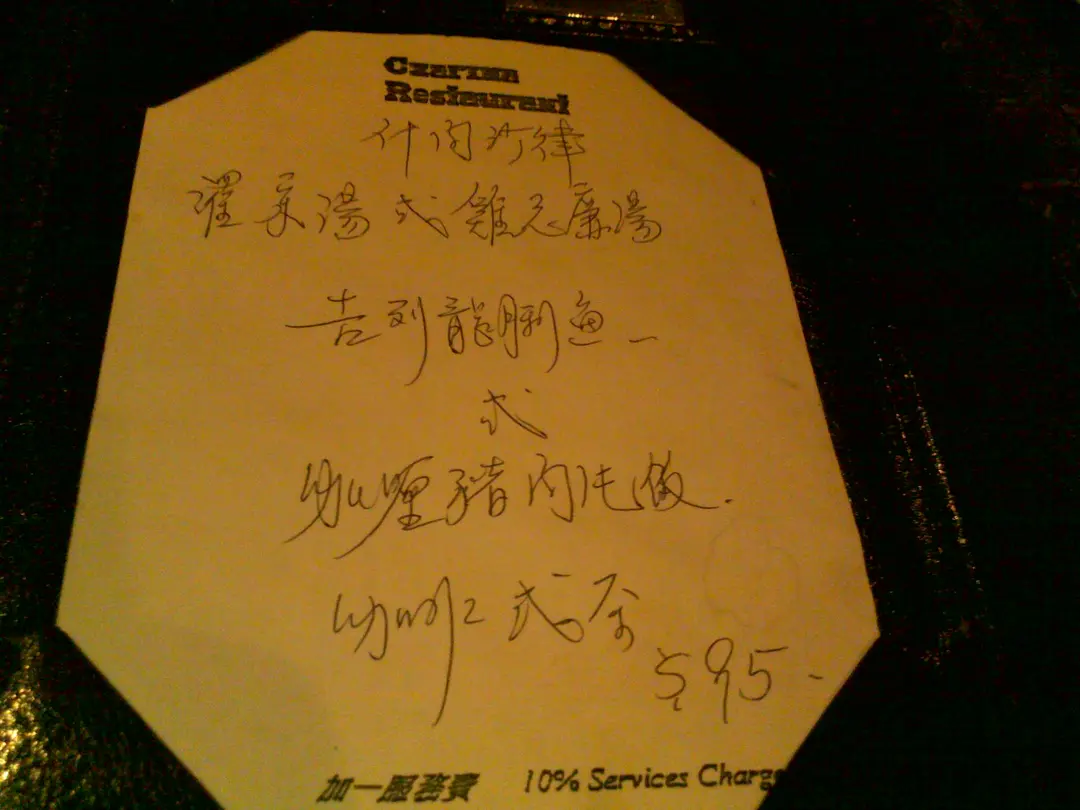 Czarina
Restaurant
什肉沙律
羅宋湯或雞忌廉湯
吉列龍脷魚
或
咖喱豬肉飯
咖啡或茶
$95-
加一服務費 10% Services Charge